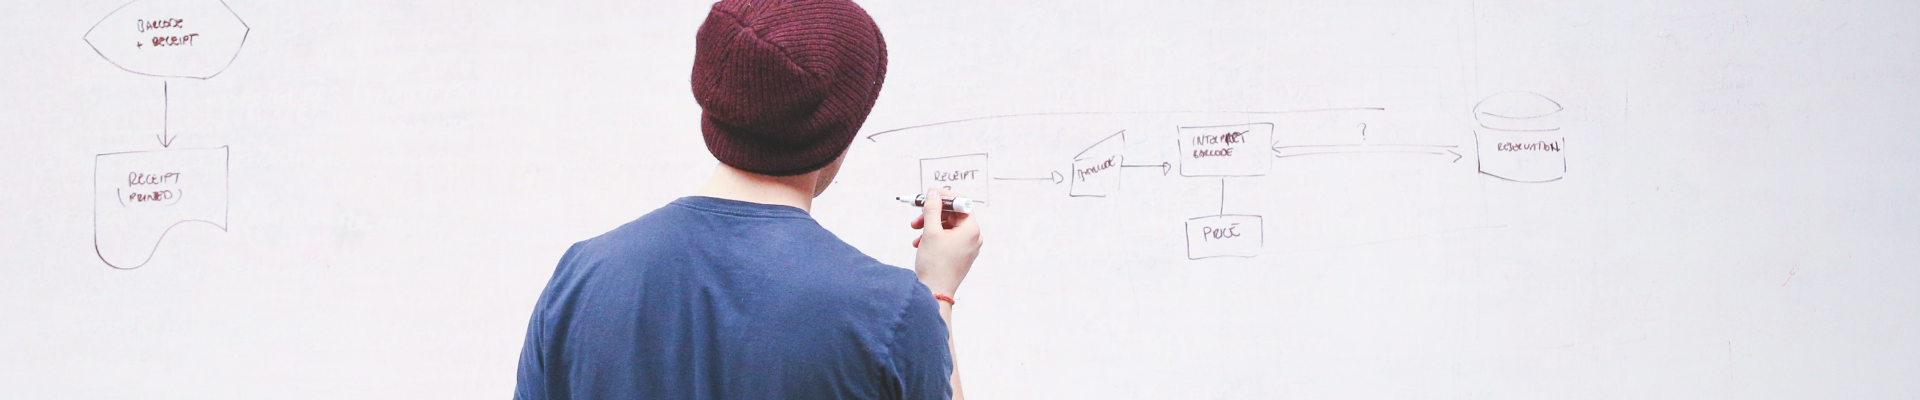 BARCODE
+ RECEIPT
RECEIPT
(PRINTED)
RECEIPT
?
BARCODE
INTERPRET
BARCODE
PRICE
?
RESERVATION